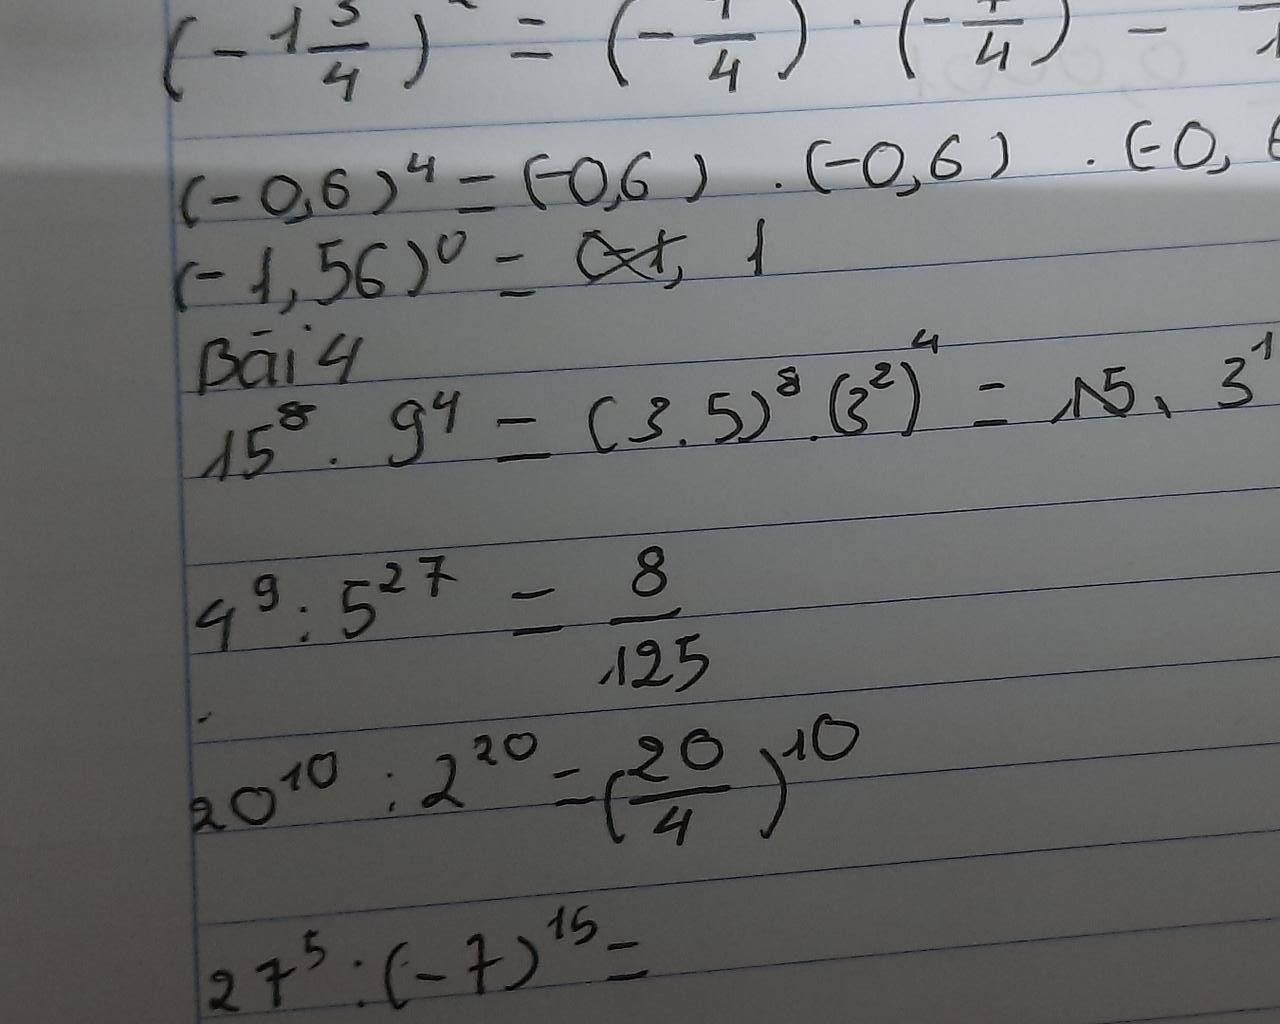 (-1 3/4)² = (-7/4) · (-7/4) =
(-0,6)⁴ = (-0,6) . (-0,6) . (-0, 6
(-1,56)⁰ = 1
Bài 4
15⁸ . 9⁴ = (3.5)⁸ . (3²)⁴ = 15. 3¹
4⁹ : 5²⁷ = 8/125
20¹⁰ : 2²⁰ = (20/4)¹⁰
27⁵ : (-7)¹⁵ =